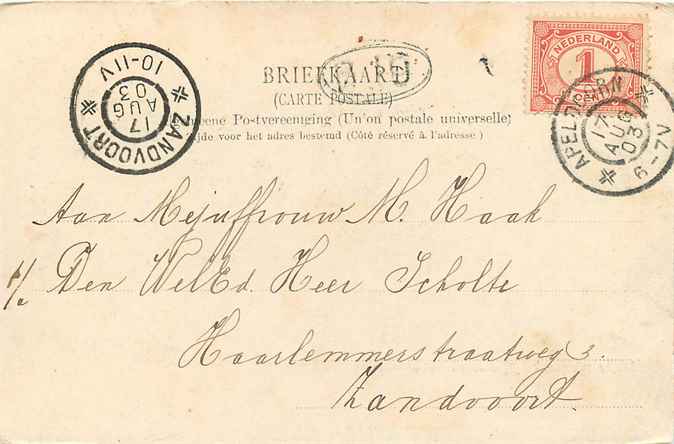 NEDERLAND
1
BRIEFKAART
(CARTE POSTALE)
eene Postvereeniging (Un'on postale universelle)
jde voor het adres bestemd (Côté réservé à l'adresse)
ZANDVOORT
17
AUG
03
10-11V
APELDOORN
17
AUG
03
6-7V
Aan Mejuffrouw M. Haak
p/a Den WelEd. Heer Scholte
Haarlemmerstraatweg 3.
Zandvoort.